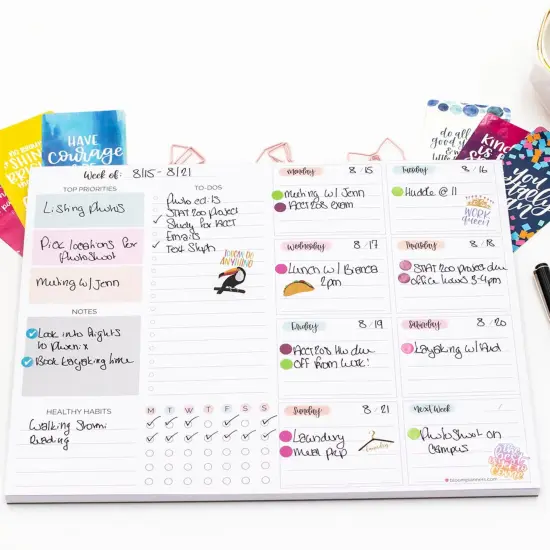 HAVE
Courage
do all
good
Week of: 8/15 - 8/21
TOP PRIORITIES
Listing Photos
Pick locations for
Photoshoot
Meeting w/ Jenn
NOTES
Look into flights
to Phoenix
Book kayaking time
HEALTHY HABITS
Walking Stormi
Reading
TO-DOS
Photo edits
STAT 200 Project
Study for ACCT
Emails
Text Steph
TOUCAN DO
ANYTHING
M T W T F S S
Monday 8/15
Meeting w/ Jenn
ACCT 205 exam
Tuesday 8/16
Huddle @ 11
WORK
QUEEN
Wednesday 8/17
Lunch w/ Bianca
2pm
Thursday 8/18
STAT 200 project due
office hours 3-4pm
Friday 8/19
ACCT 205 HW due
Off from work!
Saturday 8/20
Kayaking w/
Sunday 8/21
Laundry
Meal Prep
laundry
Next Week /
Photoshoot on
Campus
bloomplanners.com